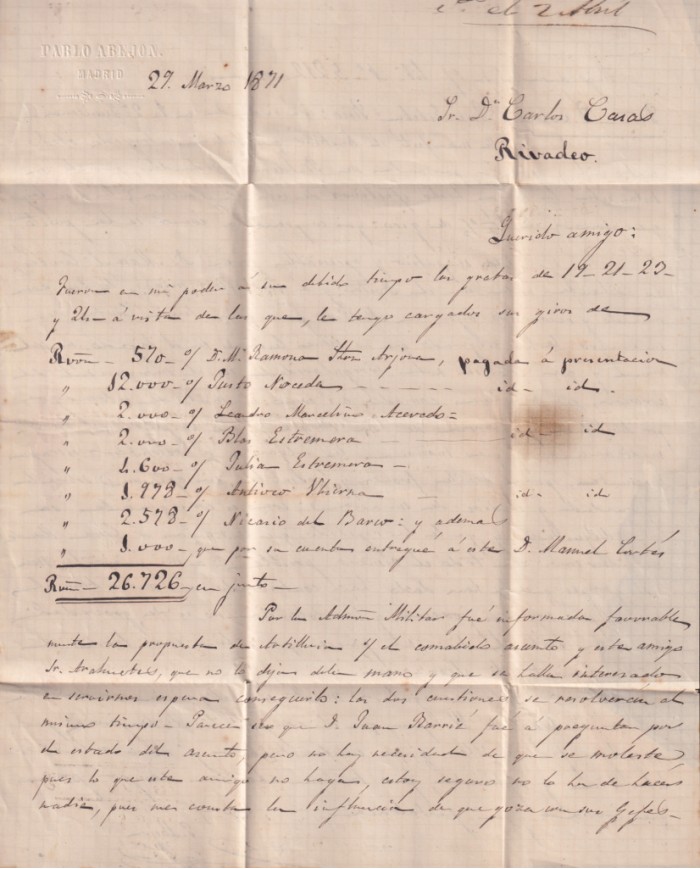 el 2 Abril
PABLO ABEJON.
MADRID
27. Marzo 1871
Sr. Dn Carlos Casas
Rivadeo.
Querido amigo:
Fueron en mi poder á su debido tiempo las gratas de 19-21-23-
y 24- á vista de las que, le tengo cargados sus giros de
Rvon- 570- o/ Da. Ma. Ramona Arjona, pagada á presentacion
" 12.000- o/ Justo Noceda - - - - id- id.
" 2.000- o/ Leandro Marcelino Acevedo=
" 2.000- o/ Blas Estremera id- id
" 4.600- o/ Julia Estremera -
" 1.978- o/ Antioco Ubierna - id- id
" 2.578- o/ Nicasio del Barco: y ademas
" 1.000- que por su cuenta entregué á este D. Manuel Cortés
Rvon- 26.726- en junto-
Por la Admon Militar fué informada favorable
mente la propuesta de Artilleria s/ el consabido asunto y este amigo
Sr. que no lo deja de la mano y que se halla interesado
en servirnos espera conseguirlo: las dos cuestiones se resolverán al
mismo tiempo- Parece ser que D. Juan Barrié fué á preguntar por
el estado del asunto, pero no hay necesidad de que se moleste
pues lo que este amigo no haga, estoy seguro no lo ha de hacer
nadie, pues me consta la influencia de que goza con sus Gefes-